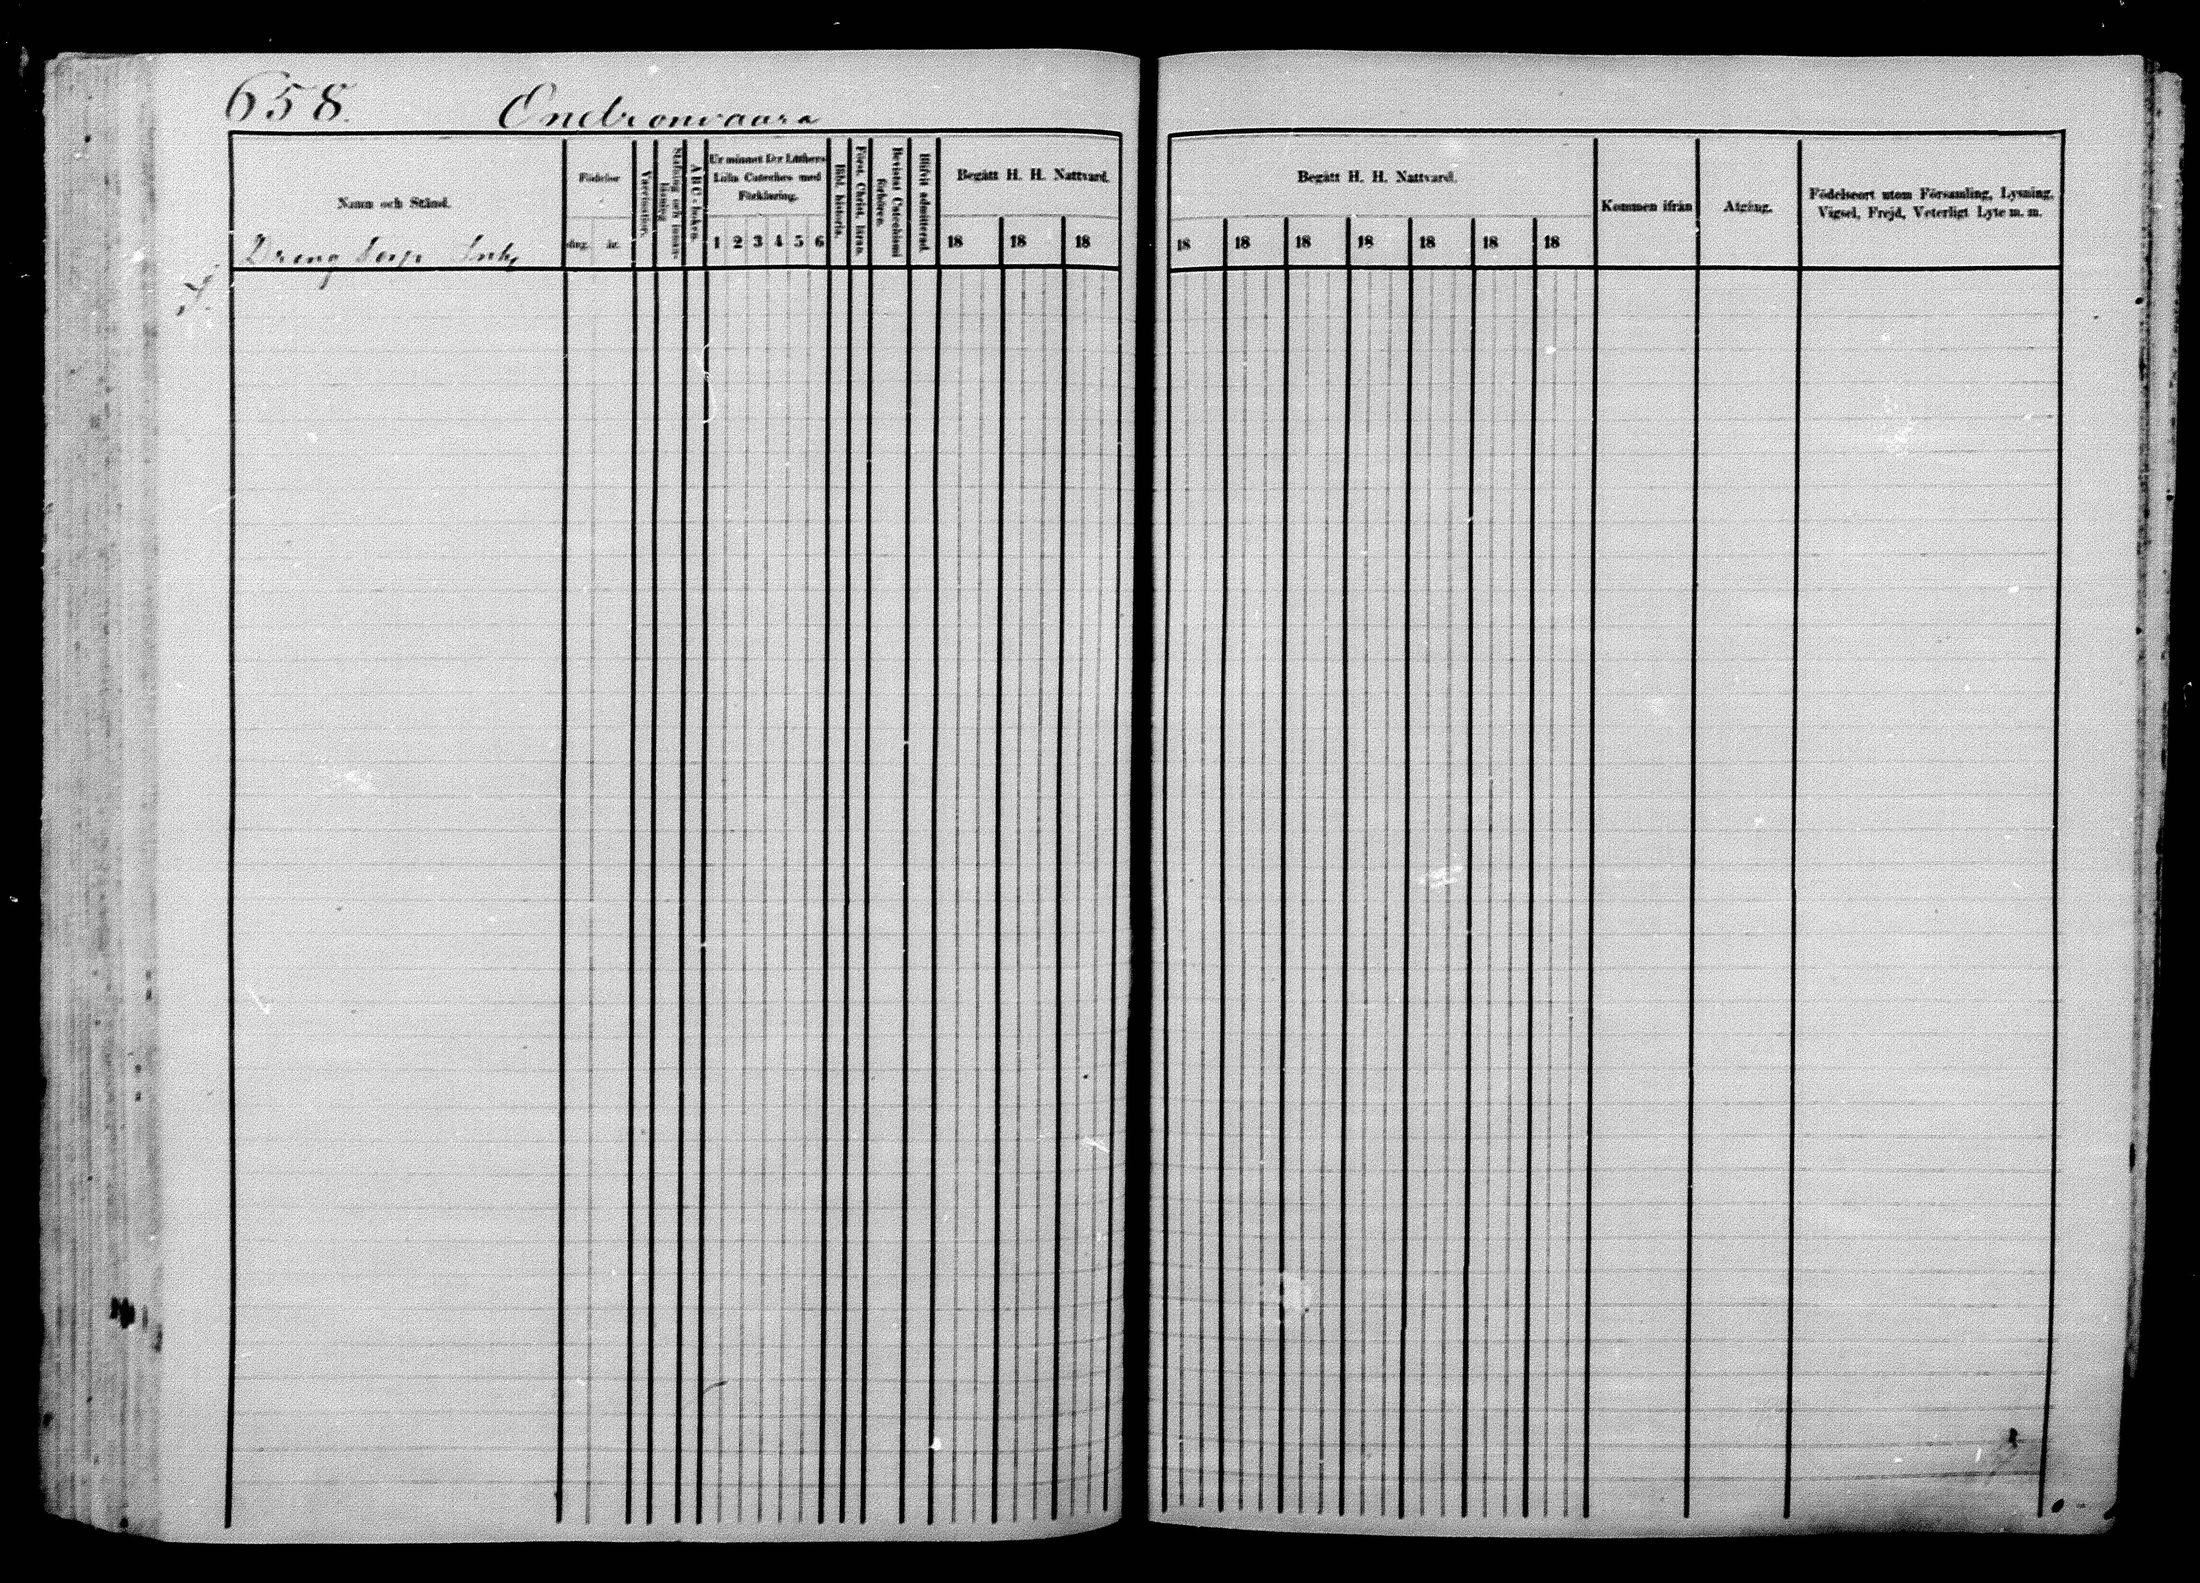 658.
Onchonvaara
Namn och Stånd.
Födelse
dag. år.
Vaccination.
Stafning och innan-
läsning
A B C - boken.
Ur minnet D:r Luthers
Lilla Cateches med
Förklaring.
1 2 3 4 5 6
Bibl. historia.
Först. Christ. läran.
Bevistat Catechismi
förhören.
Blifvit admitterad.
Begått H. H. Nattvard.
18 18 18
Dreng
Begått H. H. Nattvard.
18 18 18 18 18 18 18
Kommen ifrån
Afgång.
Födelseort utom Församling, Lysning,
Vigsel, Frejd, Veterligt Lyte m. m.